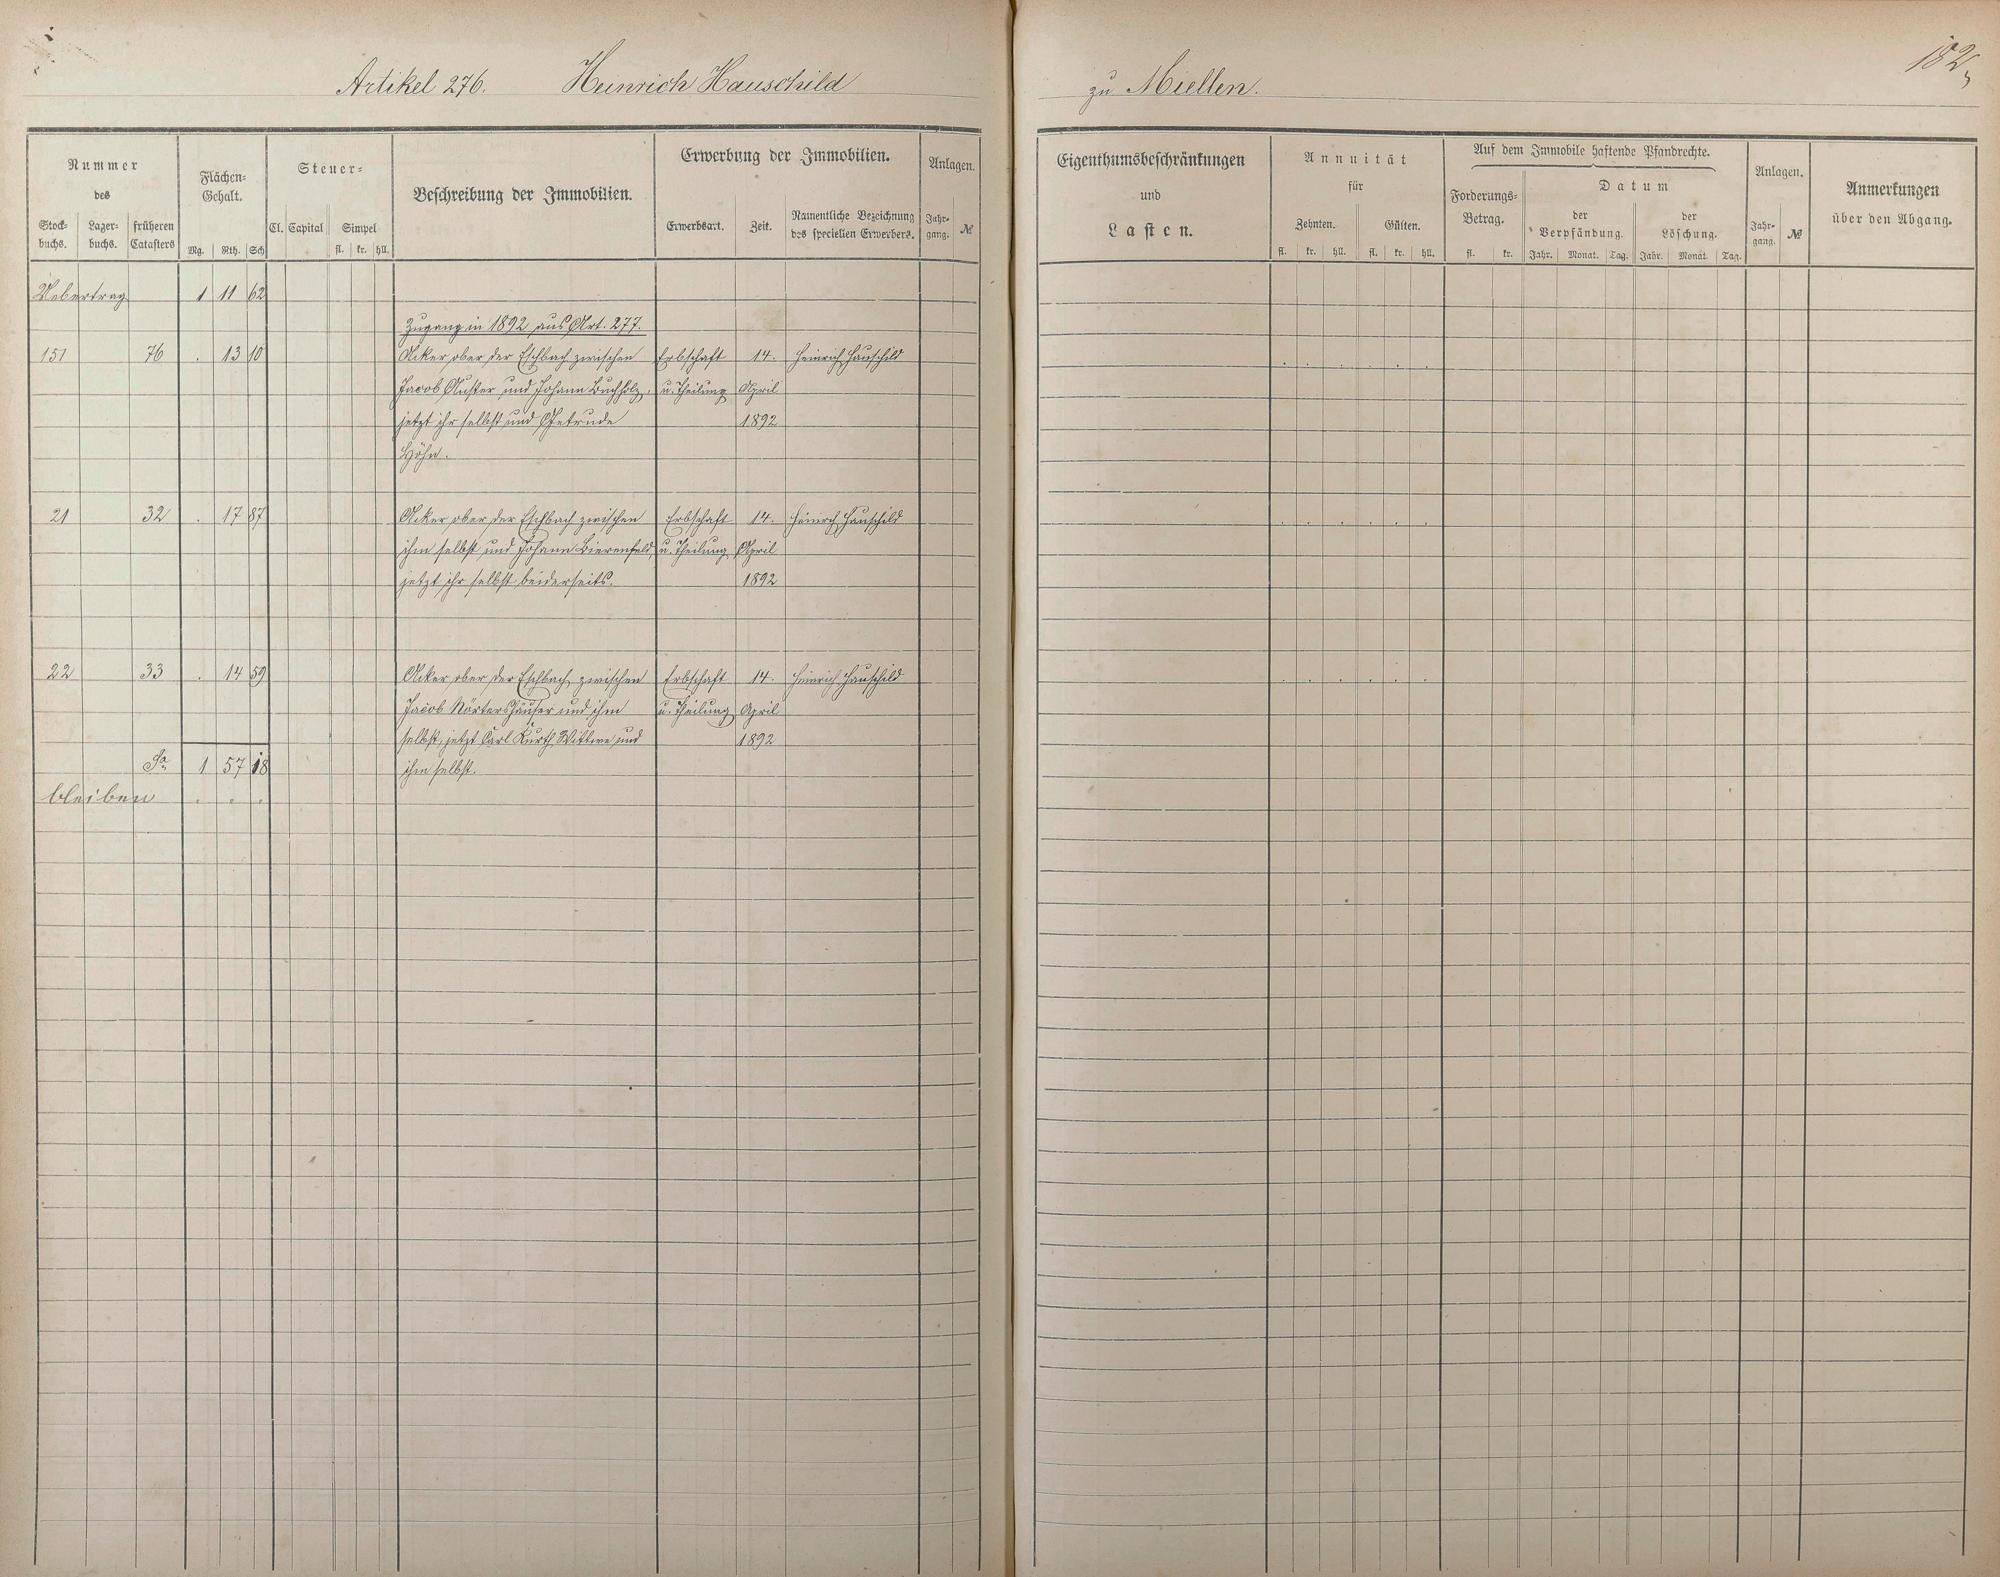 Artikel 276. Heinrich Hauschild
zu Miellen.
182
Nummer
des
Stock-
buchs.
Lager-
buchs.
früheren
Catasters
Flächen-
Gehalt.
Mg. Rth. Sch
Steuer-
Cl. Capital
Simpel
fl. kr. hll.
Beschreibung der Immobilien.
Erwerbung der Immobilien.
Erwerbsart. Zeit.
Namentliche Bezeichnung
des speciellen Erwerbers.
Anlagen.
Jahr-
gang.
№
Eigenthumsbeschränkungen
und
Lasten.
Annuität
für
Zehnten. Gülten.
fl. kr. hll. fl. kr. hll.
Auf dem Immobile haftende Pfandrechte.
Forderungs-
Betrag.
fl. kr.
Datum
der
Verpfändung.
Jahr. Monat. Tag.
der
Löschung.
Jahr. Monat. Tag.
Anlagen.
Jahr-
gang.
№
Anmerkungen
über den Abgang.
Uebertrag 1 11 62
Zugang in 1892 aus Art. 277.
151 76 . 13 10 Acker ober der Eschbach zwischen Erbschaft 14. Heinrich Hauschild
Jacob Auster und Johann Buchholz, u. Theilung April
jetzt ihr selbst und Gertrude 1892
Höhn.
21 32 . 17 87 Acker ober der Eschbach zwischen Erbschaft 14. Heinrich Hauschild
ihm selbst und Johann Bierenfeld, u. Theilung April
jetzt ihr selbst beiderseits. 1892
22 33 . 14 59 Acker ober der Eschbach zwischen Erbschaft 14. Heinrich Hauschild
Jacob Nörtershäuser und ihm u. Theilung April
selbst, jetzt Carl Kurth Wittwe und 1892
Sa 1 57 18 ihm selbst.
bleiben . . .